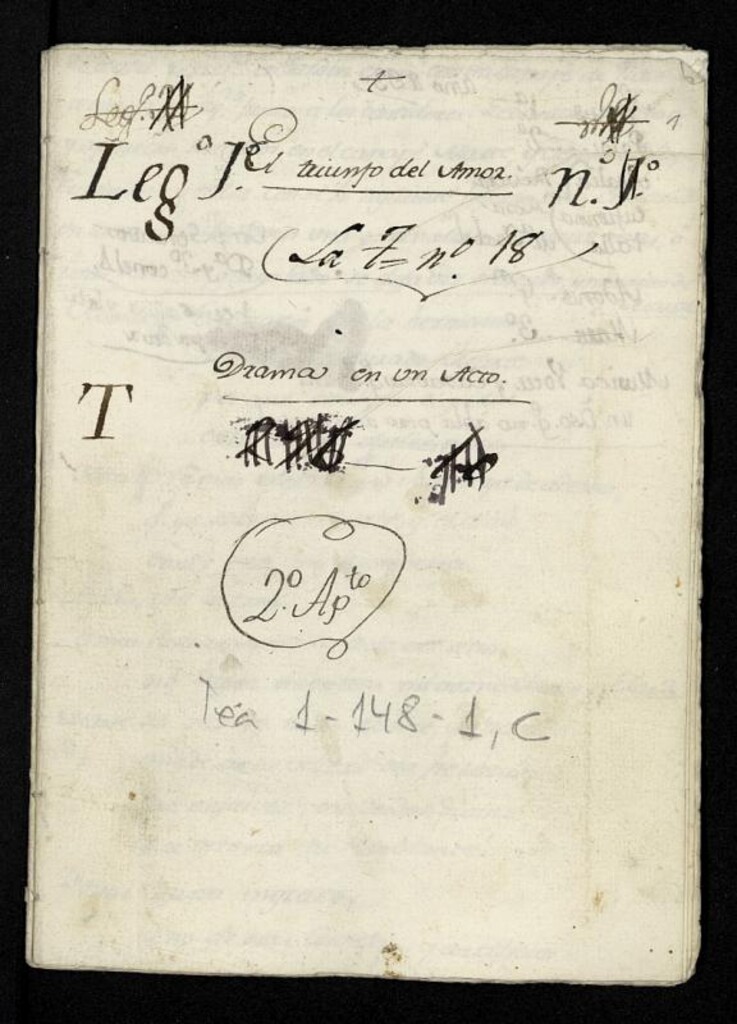 +
Leg.º
1
Leg.º J.º El triunfo del Amor. n.º 1.º
La 7= nº. 18
Drama en un Acto.
T
2º. Apto
Tea 1-148-1, C